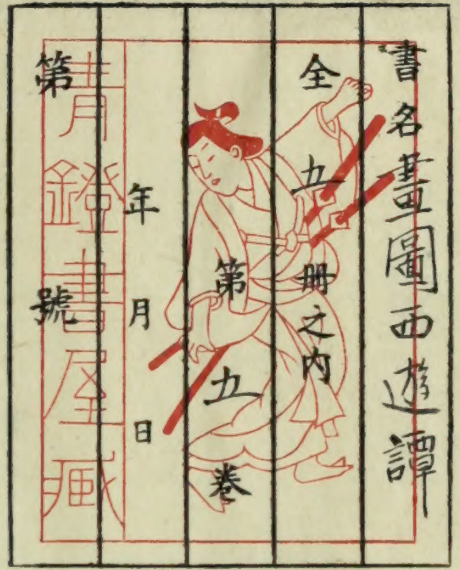 書名畫圖西遊譚
全五册之内
第五卷
年月日
第號
青鐙書屋藏